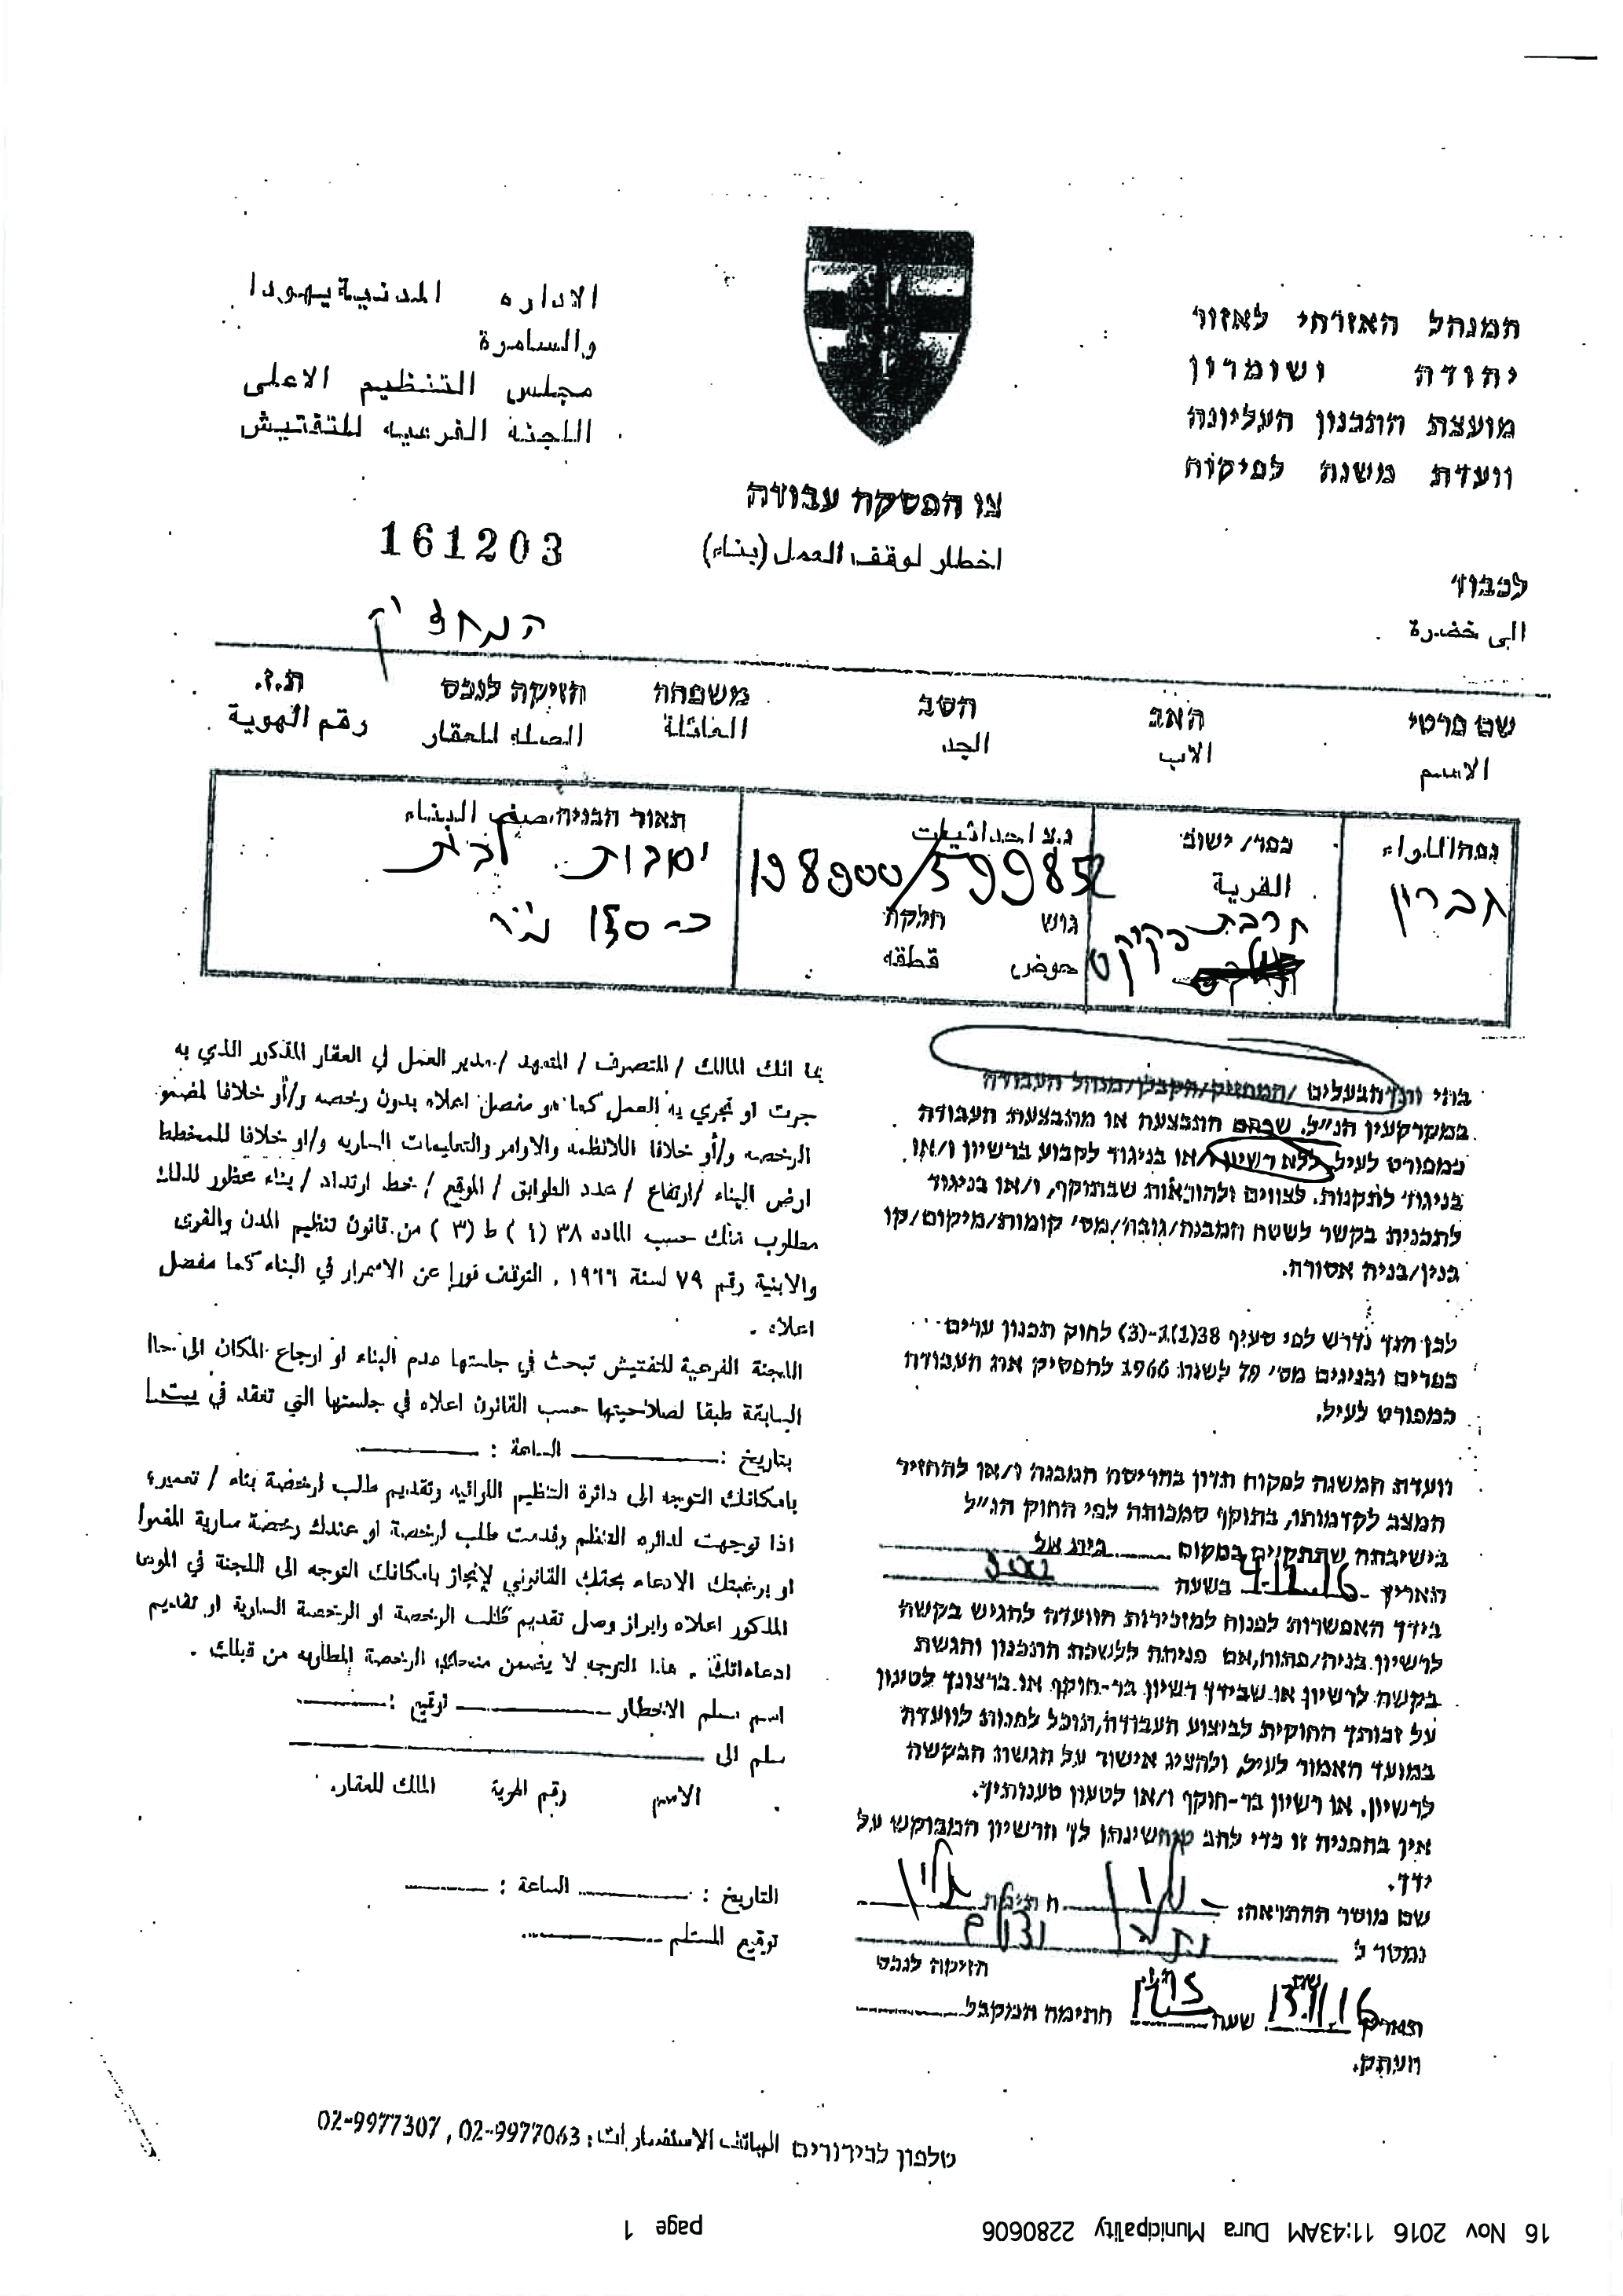 המנהל האזרחי לאזור
יהודה ושומרון
מועצת התכנון העליונה
וועדת משנה לפיקוח
الاداره المدنية يهودا
والسامرة
مجلس التنظيم الاعلى
اللجنة الفرعيه للتفتيش
צו הפסקת עבודה
اخطار لوقف العمل (بناء)
161203
לכבוד
الى حضرة
המחזיק
שם פרטי האב הסב משפחה חזיקה לנכס ת.ז.
الاسم الاب الجد العائلة الصله للعقار رقم الهوية
נפה/اللواء
חברון
כפר/ישוב
القرية
חרבת
נ.צ احداثيات
198900/59985
גוש חלקה
حوض قطعه
תאור הבניה صف البناء
יסודות לבית
כ-150 מ"ר
בהיות והנך הבעלים/המחזיק/הקבלן/מנהל העבודה
במקרקעין הנ"ל, שבהם התבצעה או מתבצעת העבודה
כמפורט לעיל, ללא רשיון ו/או בניגוד לקבוע ברשיון ו/או
בניגוד לתקנות, לצווים ולהוראות שבתוקף, ו/או בניגוד
לתכנית בקשר לשטח המבנה/גובה/מס' קומות/מיקום/קו
בנין/בניה אסורה.
לכן הנך נדרש לפי סעיף 38(1)ג-(3) לחוק תכנון ערים
כפרים ובנינים מס' 79 לשנת 1966 להפסיק את העבודה
כמפורט לעיל.
וועדת המשנה לפקוח תדון בהריסת המבנה ו/או להחזיר
המצב לקדמותו, בתוקף סמכותה לפי החוק הנ"ל
בישיבתה שתתקיים במקום בית אל
תאריך 4.12.16 בשעה 9:00
בידך האפשרות לפנות למזכירות הוועדה להגיש בקשה
לרשיון בניה/פתוח, אם פניתה ללשכת התכנון והגשת
בקשה לרשיון או שבידך רשיון בר-תוקף או ברצונך לטעון
על זכותך החוקית לביצוע העבודה, תוכל לפנות לוועדה
במועד האמור לעיל, ולהציג אישור על הגשת הבקשה
לרשיון, או רשיון בר-תוקף ו/או לטעון טענותיך.
אין בהפניה זו כדי להבטיח שינתן לך הרשיון המבוקש על
ידך.
שם מוסר ההתראה: חתימה
נמסר ל
שם ת.ז. חזיקה לנכס
תאריך 13.11.16 שעה 1215 חתימת המקבל
העתק.
بما انك المالك / المتصرف / المتعهد / مدير العمل في العقار المذكور الذي به
جرت او تجري به العمل كما هو مفصل اعلاه بدون رخصه و/أو خلافا لمضمون
الرخصه و/أو خلافا للانظمه والاوامر والتعليمات الساريه و/او خلافا للمخطط
ارض البناء /ارتفاع / عدد الطوابق / الموقع / خط ارتداد / بناء محظور لذلك
مطلوب منك حسب الماده ٣٨ (١) ط (٣) من قانون تنظيم المدن والقرى
والابنية رقم ٧٩ لسنة ١٩٦٦ . التوقف فورا عن الاستمرار في البناء كما مفصل
اعلاه .
اللجنة الفرعية للتفتيش تبحث في جلستها هدم البناء او ارجاع المكان الى حالته
السابقة طبقا لصلاحيتها حسب القانون اعلاه في جلستها التي تعقد في
بتاريخ : الساعة :
بامكانك التوجه الى دائرة التنظيم اللوائيه وتقديم طلب لرخصة بناء / تعمير؛
اذا توجهت لدائره التنظيم وقدمت طلب لرخصة او عندك رخصة سارية المفعول
او برغبتك الادعاء بحقك القانوني لإنجاز بامكانك التوجه الى اللجنة في الموعد
المذكور اعلاه وابراز وصل تقديم طلب الرخصة او الرخصة السارية او تقديم
ادعاءاتك . هذا التوجه لا يضمن منحك الرخصة المطلوبه من قبلك .
اسم مسلم الاخطار توقيع :
سلم الى
الاسم رقم الهوية المالك للعقار.
التاريخ : الساعة :
توقيع المستلم
טלפון לבירורים الهاتف الاستفسارات: 02-9977063, 02-9977307
16 Nov 2016 11:43AM Dura Municipality 2280606 page 1